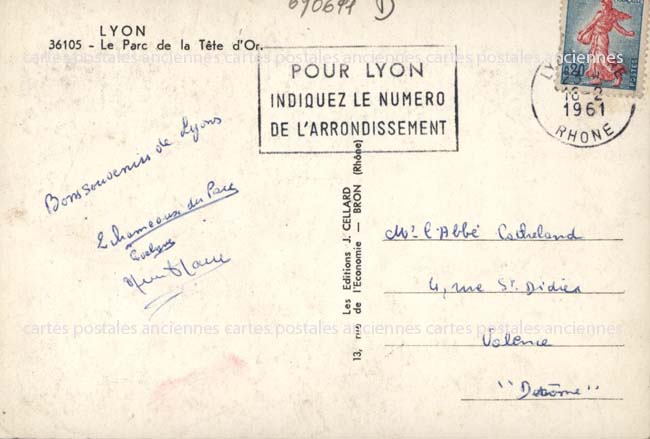 090699 D
LYON
36105 - Le Parc de la Tête d'Or.
POUR LYON
INDIQUEZ LE NUMERO
DE L'ARRONDISSEMENT
0,20
POSTES
LY
16-2
1961
RHONE
Bons souvenirs de Lyons
2 chameaux du Parc
Evelyne
13, rue de l'Economie — BRON (Rhône)
Les Editions J. CELLARD
Mr. l'Abbé Cacheland
4, rue St. Didier
Valence
"Drôme"
cartes postales anciennes cartes postales anciennes cartes postales anciennes
cartes postales anciennes cartes postales anciennes cartes postales anciennes